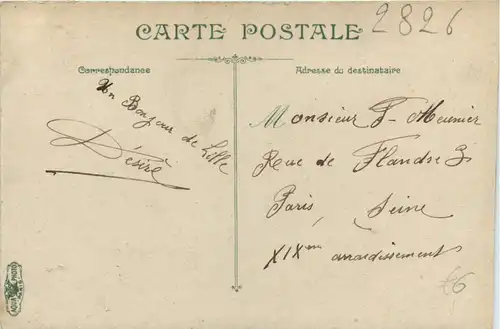 CARTE POSTALE
2826
Correspondance
Un Bonjour de Lille
Désiré
Adresse du destinataire
Monsieur F- Meunier
Rue de Flandre 3
Paris, Seine
XIXem arrondissement